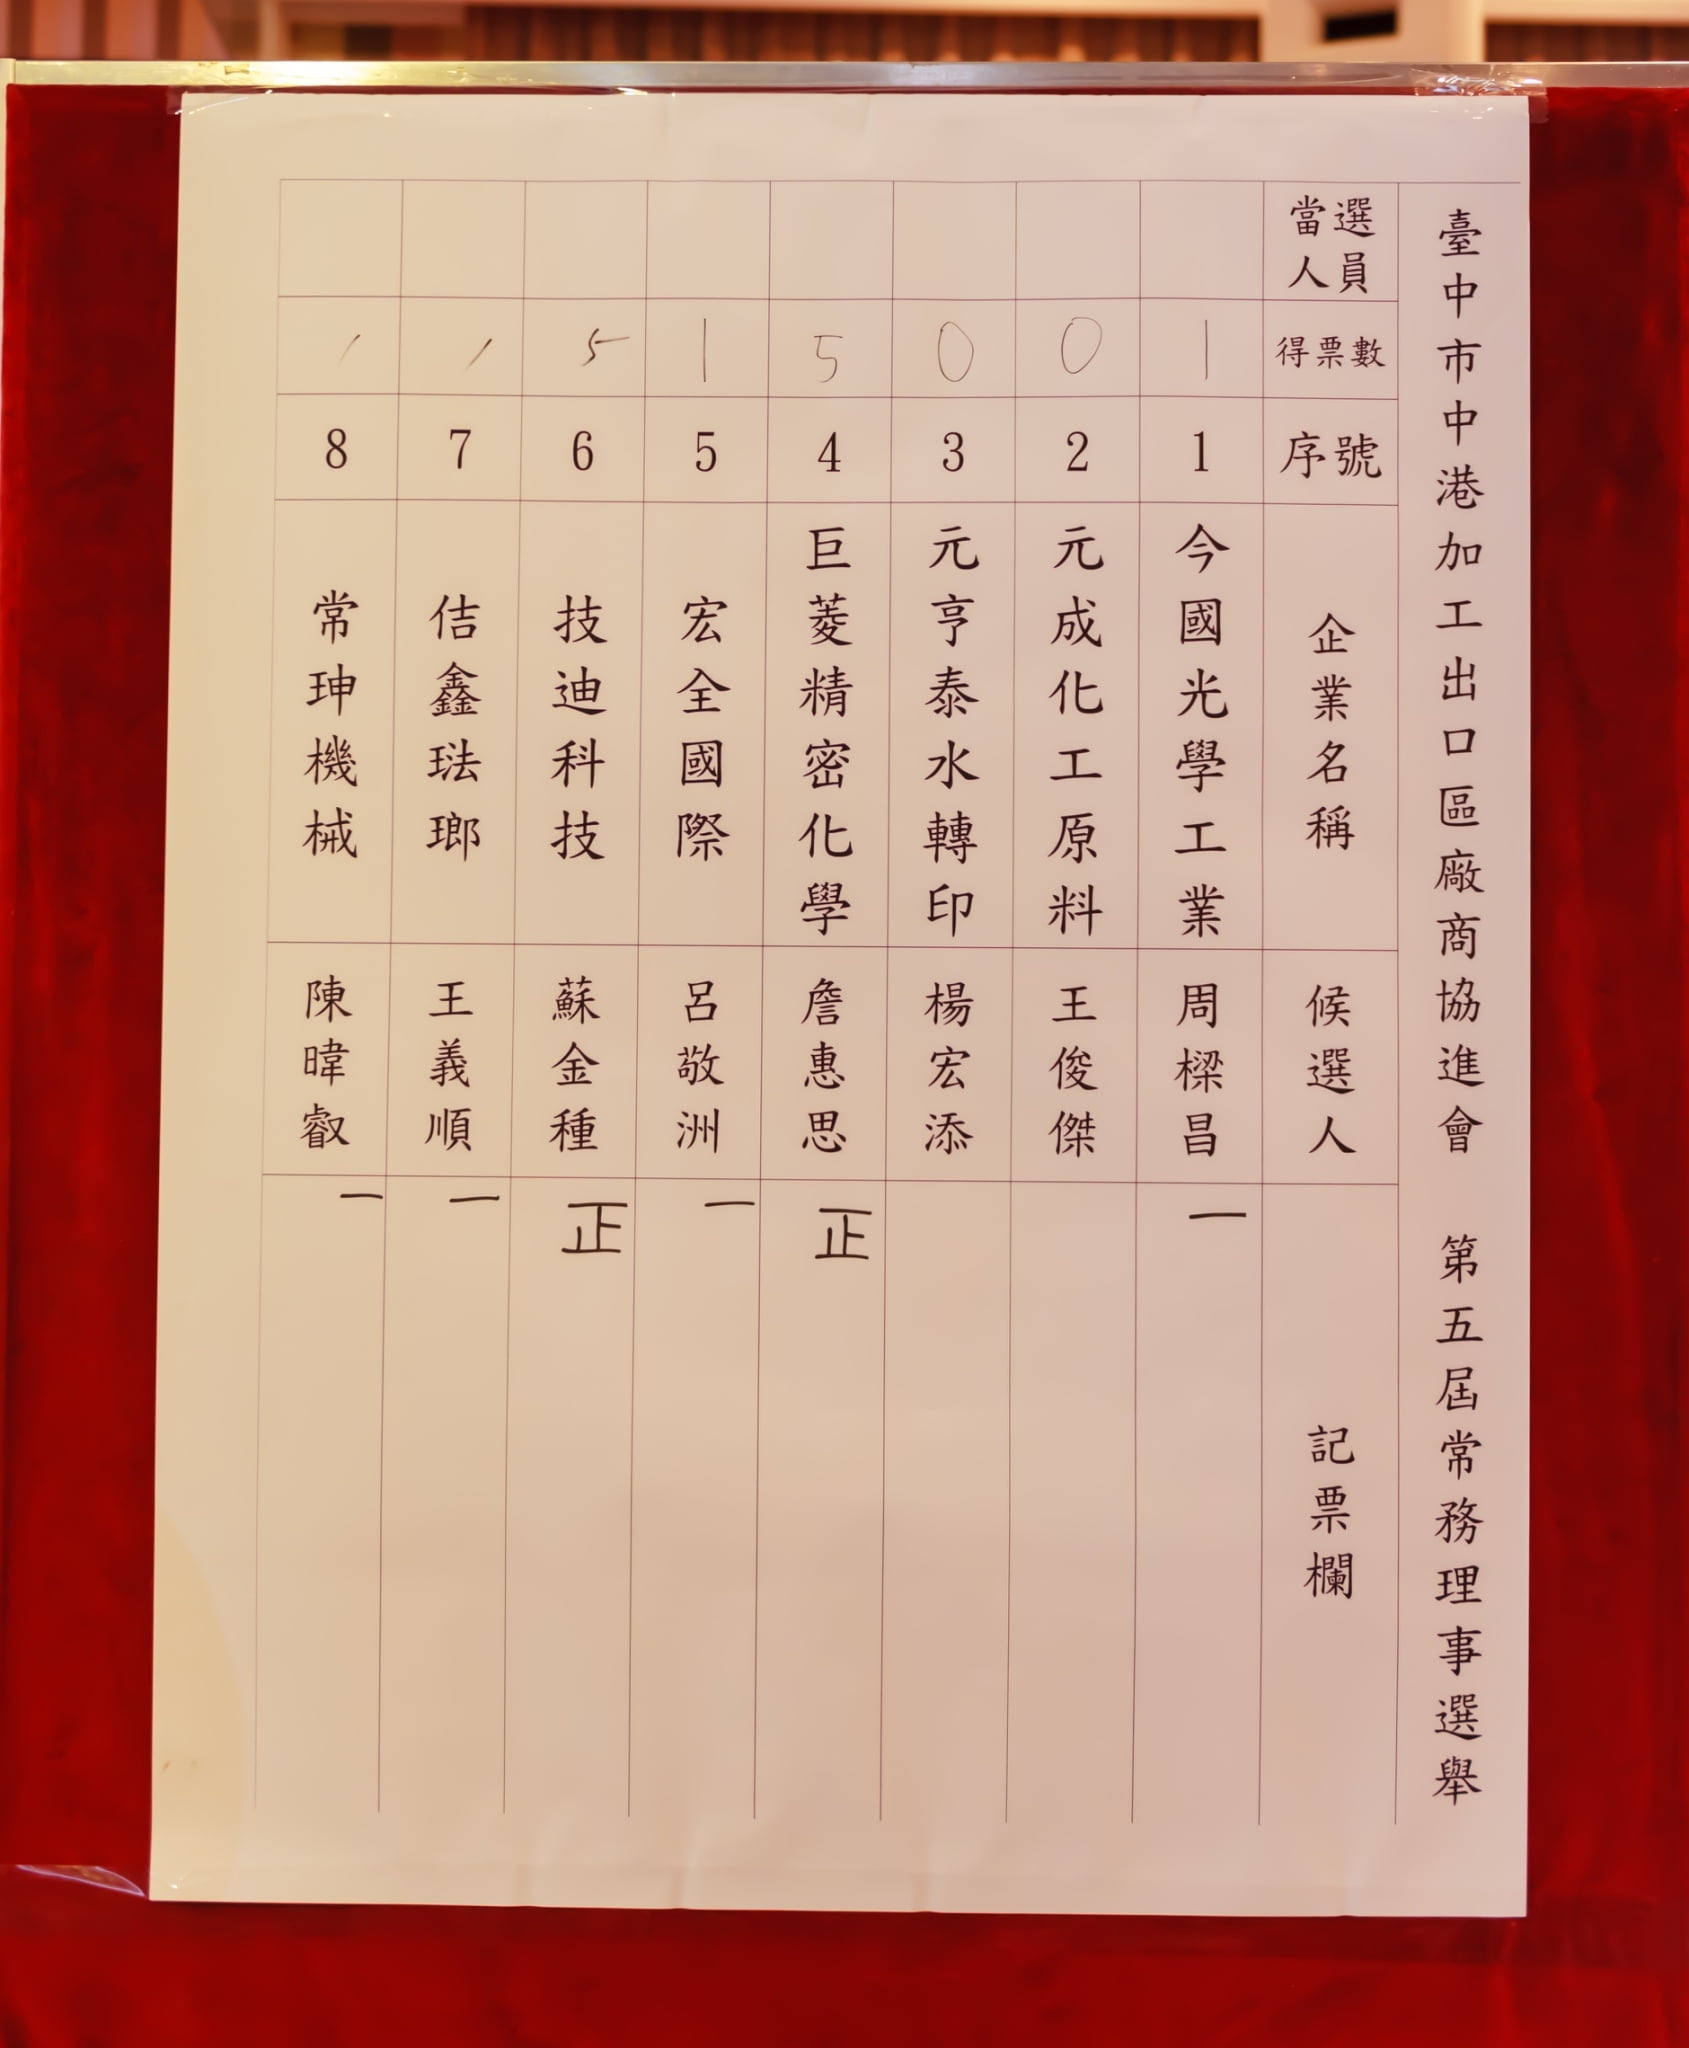 臺中市中港加工出口區廠商協進會 第五屆常務理事選舉
當選人員
得票數
序號
企業名稱
候選人
記票欄
1
1
今國光學工業
周樑昌
一
0
2
元成化工原料
王俊傑
0
3
元亨泰水轉印
楊宏添
5
4
巨菱精密化學
詹惠思
正
1
5
宏全國際
呂敬洲
一
5
6
技迪科技
蘇金種
正
1
7
佶鑫琺瑯
王義順
一
1
8
常珅機械
陳暐叡
一